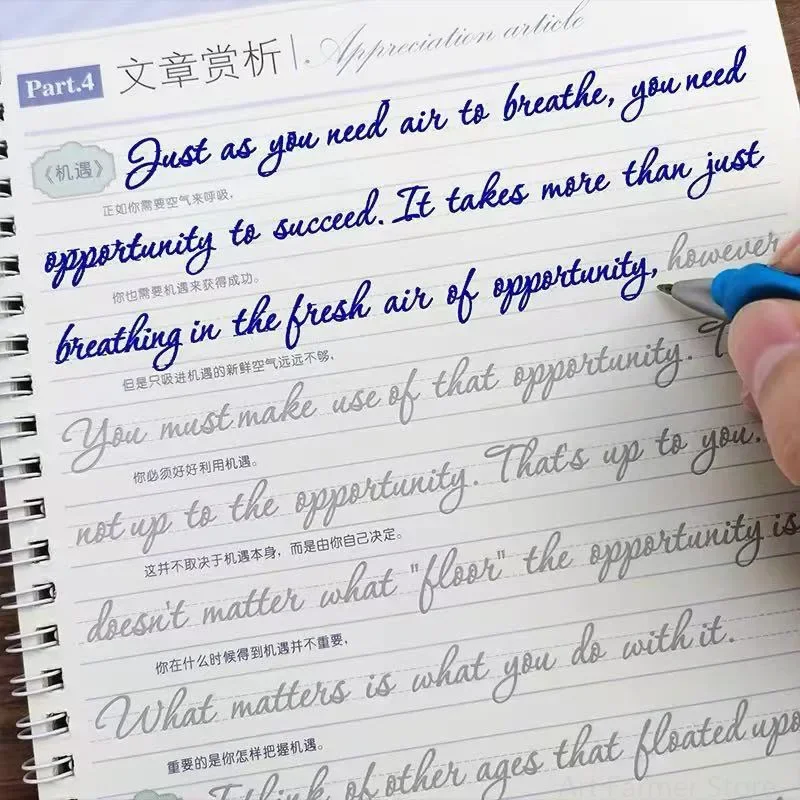 Part.4 文章赏析 Appreciation article
《机遇》 Just as you need air to breathe, you need
正如你需要空气来呼吸，
opportunity to succeed. It takes more than just
你也需要机遇来获得成功。
breathing in the fresh air of opportunity, however
但是只吸进机遇的新鲜空气远远不够，
You must make use of that opportunity. T
你必须好好利用机遇。
not up to the opportunity. That's up to you.
这并不取决于机遇本身，而是由你自己决定。
doesn't matter what "floor" the opportunity is
你在什么时候得到机遇并不重要，
What matters is what you do with it.
重要的是你怎样把握机遇。
I think of other ages that floated upo
Art Farmer Store